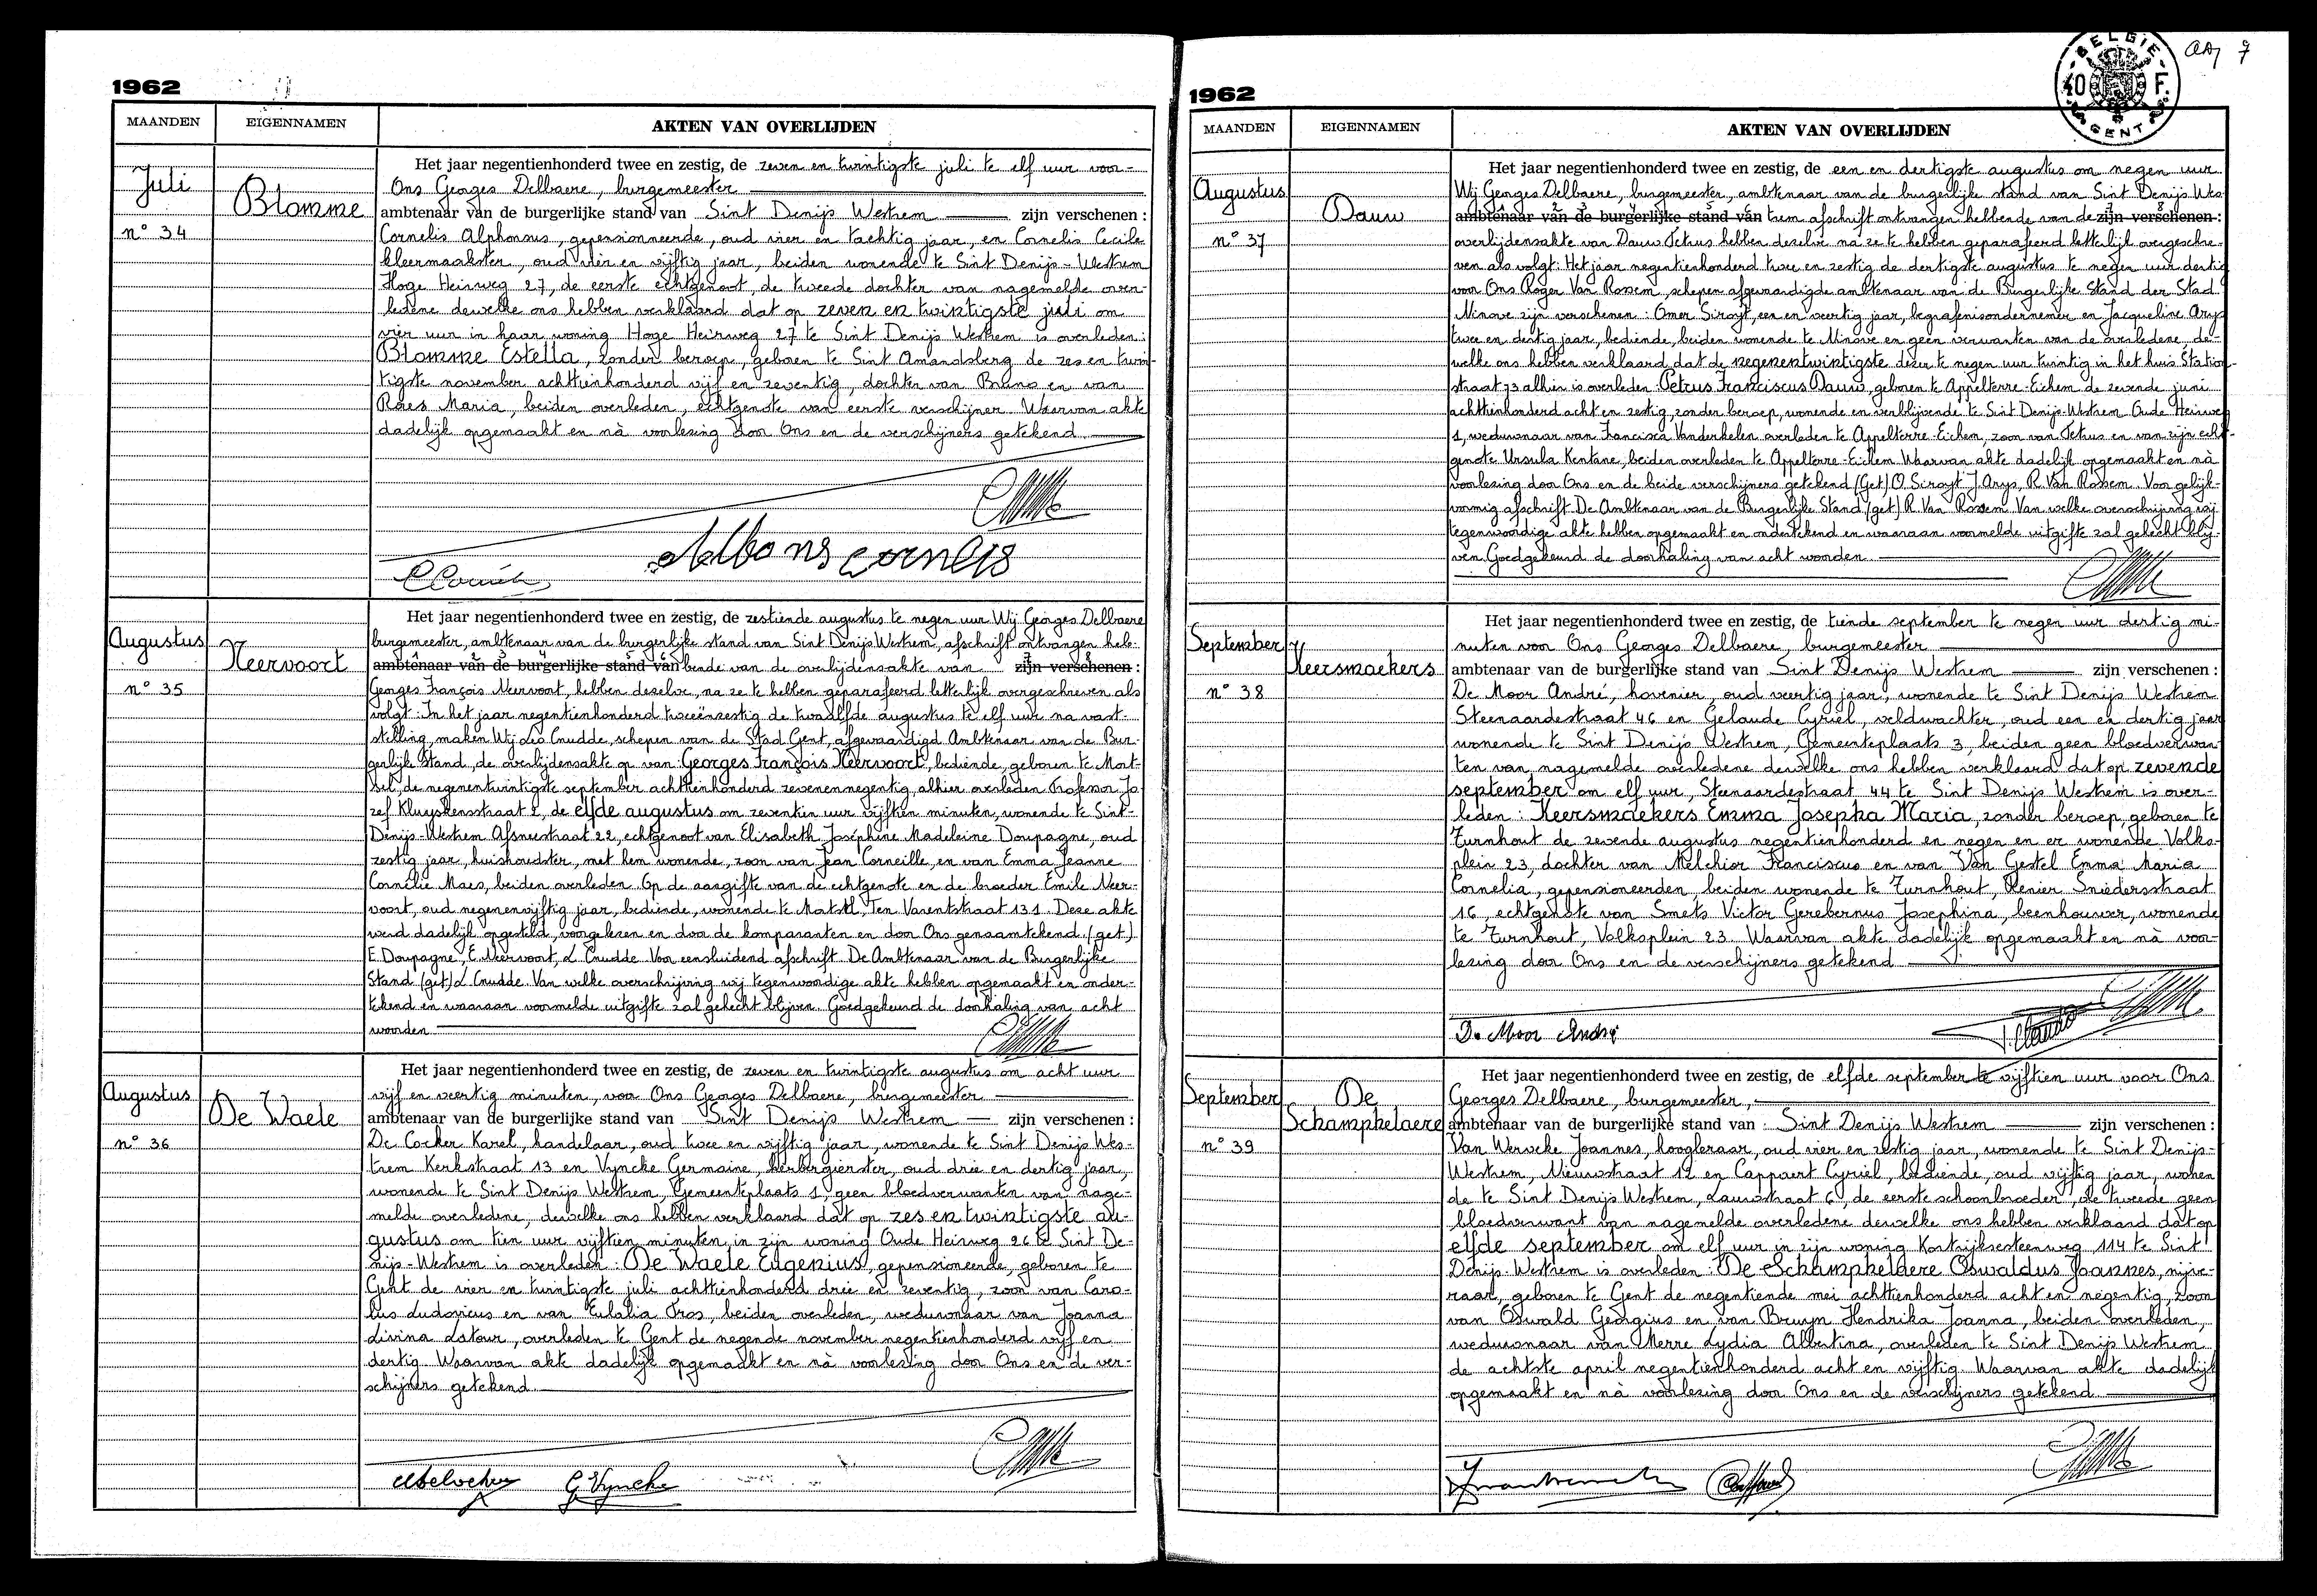 1962
MAANDEN
EIGENNAMEN
AKTEN VAN OVERLIJDEN
Juli
Blomme
n° 34
Het jaar negentienhonderd twee en zestig, de zeven en twintigste juli te elf uur voor-
Ons Georges Delbaere, burgemeester
ambtenaar van de burgerlijke stand van Sint Denijs Westrem zijn verschenen :
Cornelis Alphonsus, gepensionneerde, oud vier en tachtig jaar, en Cornelis Cecile
kleermaakster, oud vier en vijftig jaar, beiden wonende te Sint Denijs-Westrem
Hoge Heirweg 27, de eerste echtgenoot, de tweede dochter van nagemelde over-
ledene dewelke ons hebben verklaard dat op zeven en twintigste juli om
vier uur in haar woning Hoge Heirweg 27 te Sint Denijs Westrem is overleden:
Blomme Estella, zonder beroep, geboren te Sint Amandsberg de zes en twin-
tigste november achttienhonderd vijf en zeventig, dochter van Bruno en van
Raes Maria, beiden overleden, echtgenote van eerste verschijner. Waarvan akte
dadelijk opgemaakt en nà voorlezing door Ons en de verschijners getekend.
Alfons cornelis
Augustus
Neervoort
n° 35
Het jaar negentienhonderd twee en zestig, de zestiende augustus te negen uur Wij Georges Delbaere
burgemeester, ambtenaar van de burgerlijke stand van Sint Denijs Westrem, afschrift ontvangen heb-
ambtenaar van de burgerlijke stand van bende van de overlijdensakte van zijn verschenen :
Georges François Neervoort, hebben dezelve, na ze te hebben geparafeerd letterlijk overgeschreven als
volgt: In het jaar negentienhonderd tweeënzestig de twaalfde augustus te elf uur na vast-
stelling, maken Wij Leo Cnudde, schepen van de Stad Gent, afgevaardigd Ambtenaar van de Bur-
gerlijk Stand, de overlijdensakte op van Georges François Neervoort, bediende, geboren te Mort-
sel, de negenentwintigste september achttienhonderd zevenennegentig, alhier overleden Professor Jo-
zef Kluyskensstraat 2, de elfde augustus om zeventien uur vijftien minuten, wonende te Sint-
Denijs-Westrem Afsneestraat 22, echtgenoot van Elisabeth Joséphine Madeleine Doupagne, oud
zestig jaar, huishoudster, met hem wonende, zoon van Jean Corneille, en van Emma Jeanne
Cornélie Maes, beiden overleden. Op de aangifte van de echtgenote en de broeder Emile Neer-
voort, oud negenenvijftig jaar, bediende, wonende te Mortsel, Ten Varentstraat 131. Deze akte
werd dadelijk opgesteld, voorgelezen en door de komparanten en door Ons genaamtekend. (get.)
E. Doupagne, E. Neervoort, L Cnudde. Voor eensluidend afschrift. De Ambtenaar van de Burgerlijke
Stand (get) L Cnudde. Van welke overschrijving wij tegenwoordige akte hebben opgemaakt en onder-
tekend en waaraan voormelde uitgifte zal gehecht blijven. Goedgekeurd de doorhaling van acht
woorden.
Augustus
De Waele
n° 36
Het jaar negentienhonderd twee en zestig, de zeven en twintigste augustus om acht uur
vijf en veertig minuten, voor Ons Georges Delbaere, burgemeester
ambtenaar van de burgerlijke stand van Sint Denijs Westrem zijn verschenen :
De Cocker Karel, handelaar, oud twee en vijftig jaar, wonende te Sint Denijs Wes-
trem Kerkstraat 13 en Vyncke Germaine, herbergierster, oud drie en dertig jaar,
wonende te Sint Denijs Westrem, Gemeenteplaats 1, geen bloedverwanten van nage-
melde overledene, dewelke ons hebben verklaard dat op zes en twintigste au-
gustus om tien uur vijftien minuten, in zijn woning Oude Heirweg 26 te Sint De-
nijs-Westrem is overleden : De Waele Eugenius, gepensioneerde, geboren te
Gent de vier en twintigste juli achttienhonderd drie en zeventig, zoon van Caro-
lus Ludovicus en van Eulalia Tros, beiden overleden, weduwnaar van Joanna
Livina Latour, overleden te Gent de negende november negentienhonderd vijf en
dertig. Waarvan akte dadelijk opgemaakt en nà voorlezing door Ons en de ver-
schijners getekend.
G Vyncke
BELGIE
40 F.
GENT
7
1962
MAANDEN
EIGENNAMEN
AKTEN VAN OVERLIJDEN
Augustus
Dauw
n° 37
Het jaar negentienhonderd twee en zestig, de een en dertigste augustus om negen uur
Wij Georges Delbaere, burgemeester, ambtenaar van de burgerlijke stand van Sint Denijs Wes-
ambtenaar van de burgerlijke stand van trem afschrift ontvangen hebbende van de zijn verschenen :
overlijdensakte van Dauw Petrus hebben dezelve na ze te hebben geparafeerd letterlijk overgeschre-
ven als volgt: Het jaar negentienhonderd twee en zestig de dertigste augustus te negen uur dertig
voor Ons Roger Van Rossem, schepen afgevaardigde ambtenaar van de Burgerlijke Stand der Stad
Ninove zijn verschenen : Omer Siroyt, een en veertig jaar, begrafenisondernemer en Jacqueline Arys
twee en dertig jaar, bediende, beiden wonende te Ninove en geen verwanten van de overledene, de-
welke ons hebben verklaard dat de negenentwintigste dezer te negen uur twintig in het huis Station-
straat 73 alhier is overleden Petrus Franciscus Dauw, geboren te Appelterre-Eichem de zevende juni
achttienhonderd acht en zestig, zonder beroep, wonende en verblijvende te Sint Denijs-Westrem Oude Heirweg
1, weduwnaar van Francisca Vanderkelen overleden te Appelterre-Eichem, zoon van Petrus en van zijn echt-
genote Ursula Kentane, beiden overleden te Appelterre-Eichem Waarvan akte dadelijk opgemaakt en nà
voorlezing door Ons en de beide verschijners getekend (Get) O Siroyt J. Arys, R. Van Rossem. Voor gelijk-
vormig afschrift De Ambtenaar van de Burgerlijke Stand (get) R. Van Rossem Van welke overschrijving wij
tegenwoordige akte hebben opgemaakt en ondertekend en waaraan voormelde uitgifte zal gehecht blij-
ven. Goedgekeurd de doorhaling van acht woorden.
September
Keersmaekers
n° 38
Het jaar negentienhonderd twee en zestig, de tiende september te negen uur dertig mi-
nuten voor Ons Georges Delbaere, burgemeester
ambtenaar van de burgerlijke stand van Sint Denijs Westrem zijn verschenen :
De Moor André, hovenier, oud veertig jaar, wonende te Sint Denijs Westrem
Steenaardestraat 46 en Gelaude Cyriel, veldwachter, oud een en dertig jaar
wonende te Sint Denijs Westrem, Gemeenteplaats 3, beiden geen bloedverwan-
ten van nagemelde overledene dewelke ons hebben verklaard dat op zevende
september om elf uur, Steenaardestraat 44 te Sint Denijs Westrem is over-
leden : Keersmaekers Emma Josepha Maria, zonder beroep, geboren te
Turnhout de zevende augustus negentienhonderd en negen en er wonende Volks-
plein 23, dochter van Melchior Franciscus en van Van Gestel Emma Maria
Cornelia, gepensioneerden, beiden wonende te Turnhout, Renier Sniedersstraat
16, echtgenote van Smets Victor Gerebernus Josephina, beenhouwer, wonende
te Turnhout, Volksplein 23. Waarvan akte dadelijk opgemaakt en nà voor-
lezing door Ons en de verschijners getekend
De Moor André
September
De
Schamphelaere
n° 39
Het jaar negentienhonderd twee en zestig, de elfde september te vijftien uur voor Ons
Georges Delbaere, burgemeester,
ambtenaar van de burgerlijke stand van Sint Denijs Westrem zijn verschenen :
Van Werveke Joannes, hoogleraar, oud vier en zestig jaar, wonende te Sint Denijs-
Westrem, Nieuwstraat 12 en Cappaert Cyriel, bediende, oud vijftig jaar, wonen
de te Sint Denijs Westrem, Lauwstraat 6, de eerste schoonbroeder, de tweede geen
bloedverwant van nagemelde overledene dewelke ons hebben verklaard dat op
elfde september om elf uur in zijn woning Kortrijksesteenweg 114 te Sint
Denijs-Westrem is overleden : De Schamphelaere Oswaldus Joannes, nijve-
raar, geboren te Gent de negentiende mei achttienhonderd acht en negentig, zoon
van Oswald Georgius en van Bruyn Hendrika Joanna, beiden overleden,
weduwnaar van Merre Lydia Albertina, overleden te Sint Denijs Westrem
de achtste april negentienhonderd acht en vijftig. Waarvan akte dadelijk
opgemaakt en nà voorlezing door Ons en de verschijners getekend